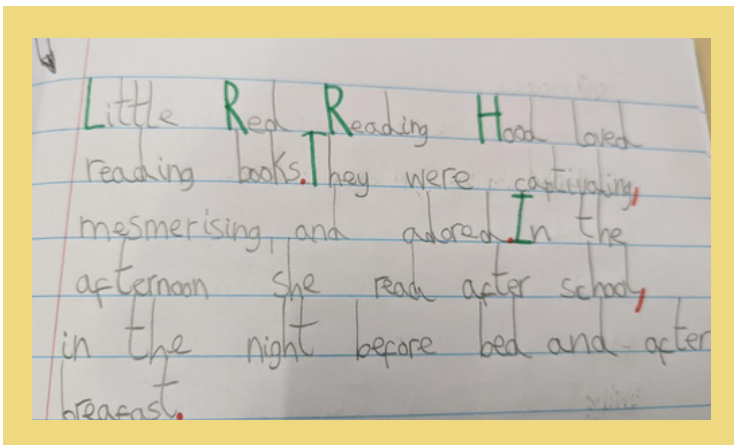 Little Red Reading Hood loved
reading books. They were captivating,
mesmerising, and adored. In the
afternoon she read after school,
in the night before bed and after
breafast.